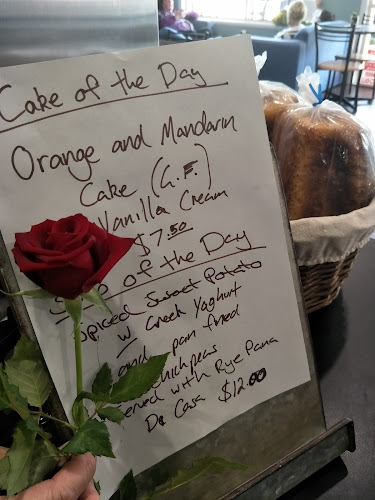 Cake of the Day
Orange and Mandarin
Cake (G.F.)
Vanilla Cream
$7.50
of the Day
Spiced Sweet Potato
w/ Greek Yoghurt
and pan fried
chickpeas
served with Rye Pana
Di Casa $12.00